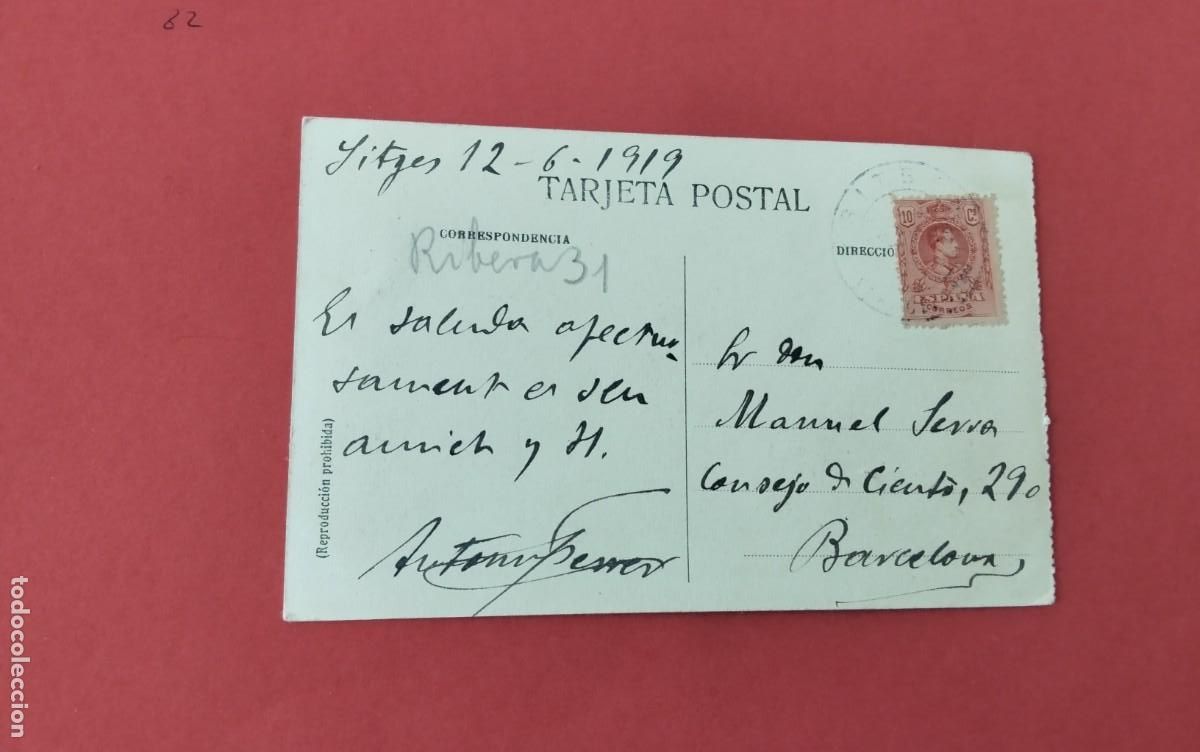 82
Sitges 12-6-1919
TARJETA POSTAL
CORRESPONDENCIA
DIRECCIÓ
Ribera 31
10 Cs
ESPAÑA
CORREOS
Es saluda afectuo-
sament el seu
amich y H.
Antoni Ferrer
(Reproducción prohibida)
Sr don
Manuel Serra
Consejo de Ciento, 290
Barcelona
todocoleccion